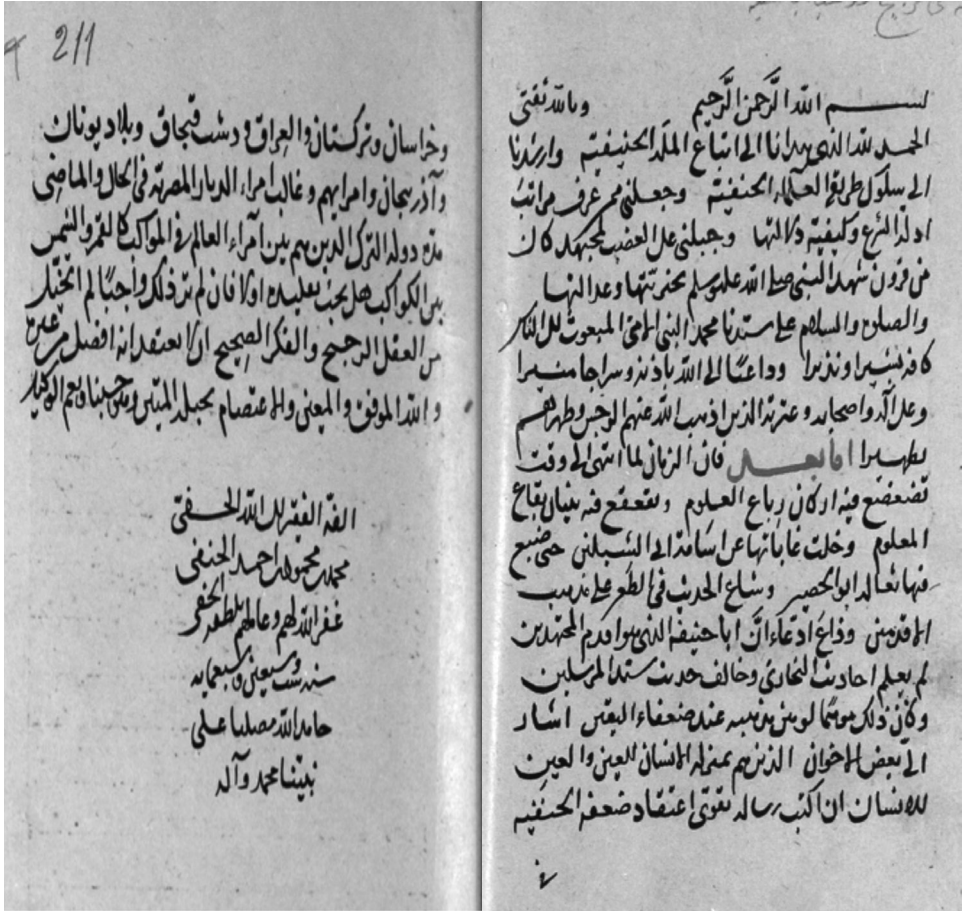 بسم الله الرحمن الرحيم وبالله ثقتي
الحمد لله الذي هدانا الى اتباع الملة الحنيفية وارشدنا
الى سلوك طريق العلماء الحنفية وجعلني ممن عرف مراتب
ادلة الشرع وكيفية دلالتها وجبلني على الغضب لمجتهد كان
من قرون شهد النبي صلى الله عليه وسلم بخيريتها وعدالتها
والصلوة والسلام على سيدنا محمد النبي الامي المبعوث الى الناس
كافة بشيرا ونذيرا وداعيا الى الله باذنه وسراجا منيرا
وعلى آله واصحابه وعترته الذين اذهب الله عنهم الرجس وطهرهم
تطهيرا اما بعد فان الزمان لما انتهى الى وقت
تضعضع فيه اركان رباع العلوم وتقعقع فيه بنيان بقاع
المعلوم وخلت غاباتها عن اسامة الى الشبلين حتى ضبع
فيها ثعاله ابو الحصين وشاع الحديث في الطعن على مذهب
الاقدمين وذاع ادعاء ان ابا حنيفة الذي هو اقدم المجتهدين
لم يعلم احاديث البخاري وخالف حديث سيد المرسلين
وكان ذلك موهما لوهن مذهبه عند ضعفاء اليقين اشار
الي بعض الاخوان الذين هم بمنزلة الانسان للعين والعين
للانسان ان اكتب رسالة تقوي اعتقاد ضعفة الحنفية
211
وخراسان وتركستان والعراق ودشت قبجاق وبلاد يونان
وآذربيجان وامرايهم وغالب امراء الديار المصرية في الحال والماضي
مدة دولة الترك الذين هم بين امراء العالم في المواكب كالقمر والشمس
بين الكواكب هل يجب تقليده اولا فان لم تر ذلك واجبا لم
من العقل الرجيح والفكر الصحيح ان لا يعتقد انه افضل من غيره
والله الموفق والمعين والاعتصام بحبله المتين وهو حسبنا ونعم الوكيل
الفه الفقير الى الله الحفي
محمد بن محمود بن احمد الحنفي
غفر الله لهم وعاملهم بلطفه الخفي
سنة ست وسبعين وسبعمايه
حامدا لله مصليا على
نبينا محمد وآله